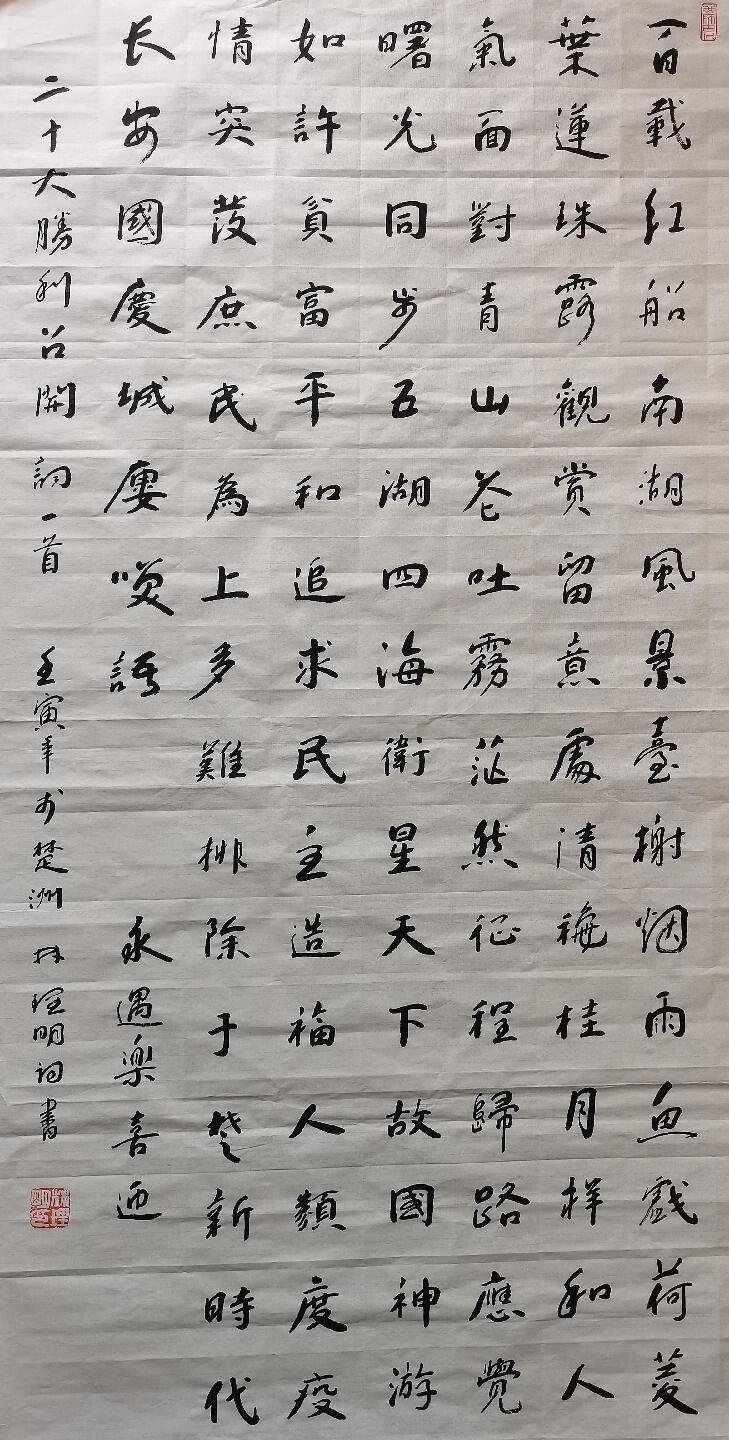 百載红船南湖風景臺榭烟雨魚戲荷菱
葉蓮珠露觀賞留意處清 桂月祥和人
氣面對青山花吐霧茫然征程歸路應覺
曙光同步五湖四海衛星天下故國神游
如許貧富平和追求民主造福人類度疫
情突發庶民為上多難排除于楚新時代
长安國慶城 喚語 永遇樂喜迎
二十大勝利召開詞一首 壬寅年於楚洲林理明詞書
林理明书